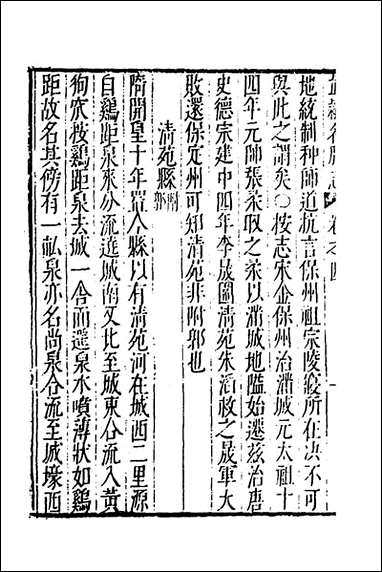 直隸名勝志 卷之四
地統制种師道抗言保州祖宗陵寢所在决不可
與此之謂矣○按志宋金保州治滿城元太祖十
四年元帥張柔取之柔以滿城地隘始遷茲治唐
史德宗建中四年李晟圍清苑朱滔救之晟軍大
敗還保定州可知清苑非附郭也
清苑縣 附郭
隋開皇十年置今縣以有清苑河在城西二里源
自鷄距泉來分流遶城南又北至城東合流入黃
狗窊按鷄距泉去城一舍而遥泉水噴薄狀如鷄
距故名其傍有一畝泉亦名尚泉合流至城壕西